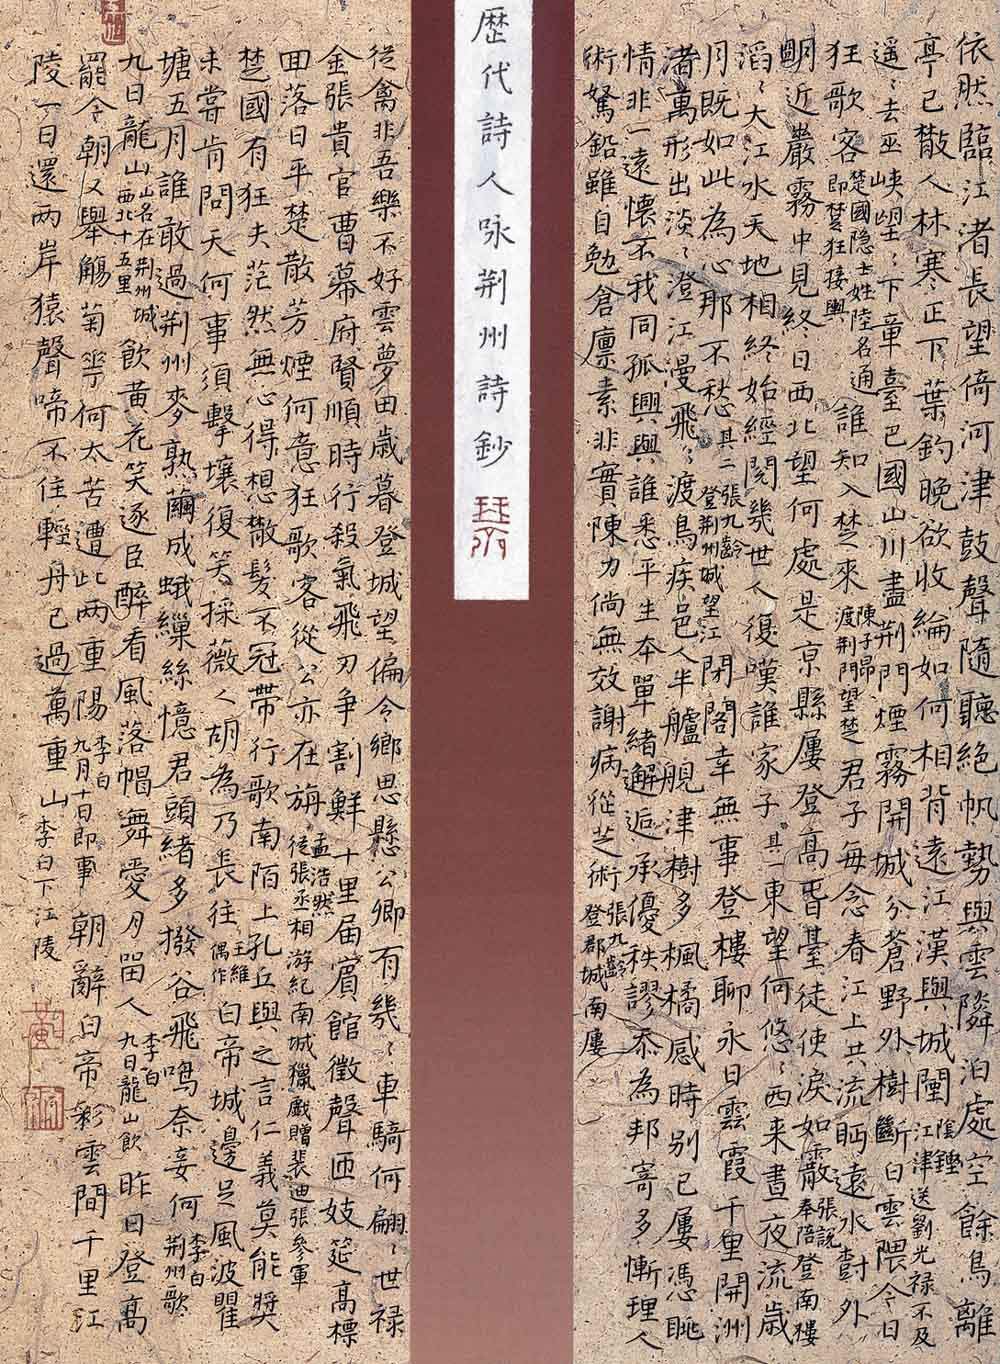 依然臨江渚長望倚河津鼓聲隨聽絕帆勢與雲隣泊處空餘鳥離
亭已散人林寒正下葉釣晚欲收綸如何相背遠江漢與城闉陰鏗江津送劉光禄不及
遥遥去巫峽望望下章臺巴國山川盡荆門煙霧開城分蒼野外樹斷白雲隈今日
狂歌客楚國隐士姓陸名通即楚狂接輿誰知入楚來陳子昂渡荆門望楚君子每念春江上共流眄遠水對外
明近巖霧中見終日西北望何處是京縣屢登高昏臺徒使淚如霰張説奉陪登南樓
滔滔大江水天地相終始經閱幾世人復嘆誰家子其一東望何悠悠西来晝夜流歲
月既如此為心那不愁其二張九齡登荆州城望江閉閣幸無事登樓聊永日雲霞千里開洲
渚萬形出淡淡澄江漫飛飛渡鳥疾邑人半艫舰津樹多楓橘感時别已屢憑眺
情非一遠懷不我同孤興與誰悉平生本單緒邂逅承優秩謬忝為邦寄多慚理人
術駑鉛雖自勉倉廪素非實陳力尚無效謝病從芝術張九齡登郡城南屢
歷代詩人咏荆州詩鈔
從禽非吾樂不好雲夢田歲暮登城望偏令鄉思懸公卿有幾幾車騎何翩翩世禄
金張貴官曹幕府賢順時行殺氣飛刃争割鮮十里届賓館徵聲匝妓筵高標
回落日平楚散芳煙何意狂歌客從公亦在旃孟浩然從張丞相游紀南城獵戲贈裴迪張參軍
楚國有狂夫茫然無心得想散髮不冠帶行歌南陌上孔丘與之言仁義莫能獎
未嘗肯問天何事須擊壤復笑採薇人胡為乃長往王維偶作白帝城邊足風波瞿
塘五月誰敢過荆州麥熟繭成蛾繅絲憶君頭緒多撥谷飛鳴奈妾何李白荆州歌
九日龍山山名在荆州城西北十五里飲黄花笑逐臣醉看風落帽舞愛月留人李白九日龍山飲昨日登高
罷今朝又舉觴菊花何太苦遭此两重陽李白九月十日即事朝辭白帝彩雲間千里江
陵一日還两岸猿聲啼不住輕舟已過萬重山李白下江陵